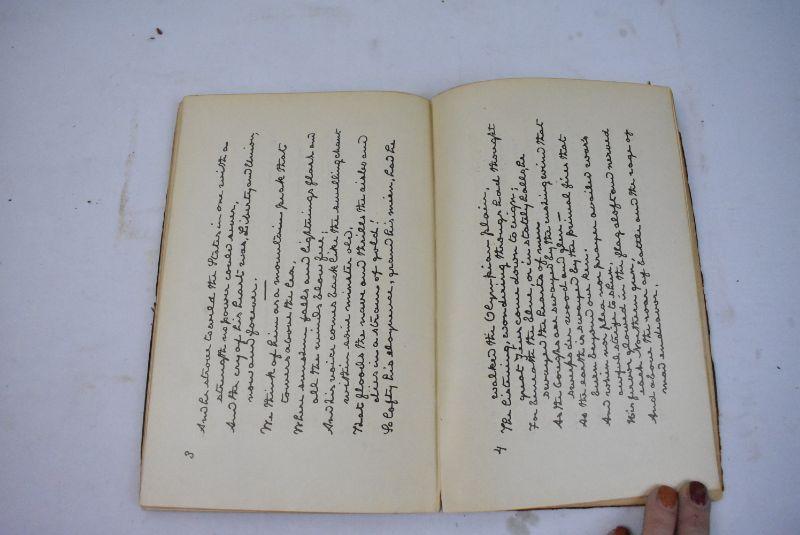 3
And he strove to weld the States in one with a
strength no power could sever,
And the cry of his heart was, Liberty and Union,
now and forever.
We think of him as a mountain peak that
towers above the lea,
Where sunshine falls and lightnings flash and
all the winds blow free;
And his voice comes back like the swelling chant
within some minster old,
That floods the nave and thrills the aisles and
dies in a strain of gold!
So lofty his eloquence, grand his mien, had he
4
walked the Olympian plain,
The listening, wondering throngs had thought
great Zeus come down to reign;
For beneath the blue, or in stately halls, he
swayed the hearts of men
As the boughs are swayed by the rushing wind that
sweeps o'er wood and glen—
As the earth is swayed by the primal fires that
burn beyond our ken.
And when nor plea nor prayer availed war's
awful strife to shun,
His fervor glowed in the flag aloft and nerved
each Northern gun,
And above the roar of battle and the rage of
mad endeavor